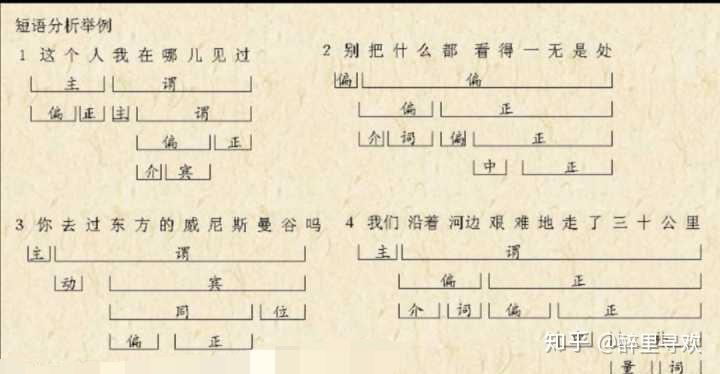 短语分析举例
1 这个人我在哪儿见过
主 谓
偏 正 主 谓
偏 正
介 宾
2 别把什么都看得一无是处
偏 偏
偏 正
介 词 偏 正
中 正
3 你去过东方的威尼斯曼谷吗
主 谓
动 宾
同 位
偏 正
4 我们沿着河边艰难地走了三十公里
主 谓
偏 正
介 词 偏 正
量 词
知乎 @醉里寻欢